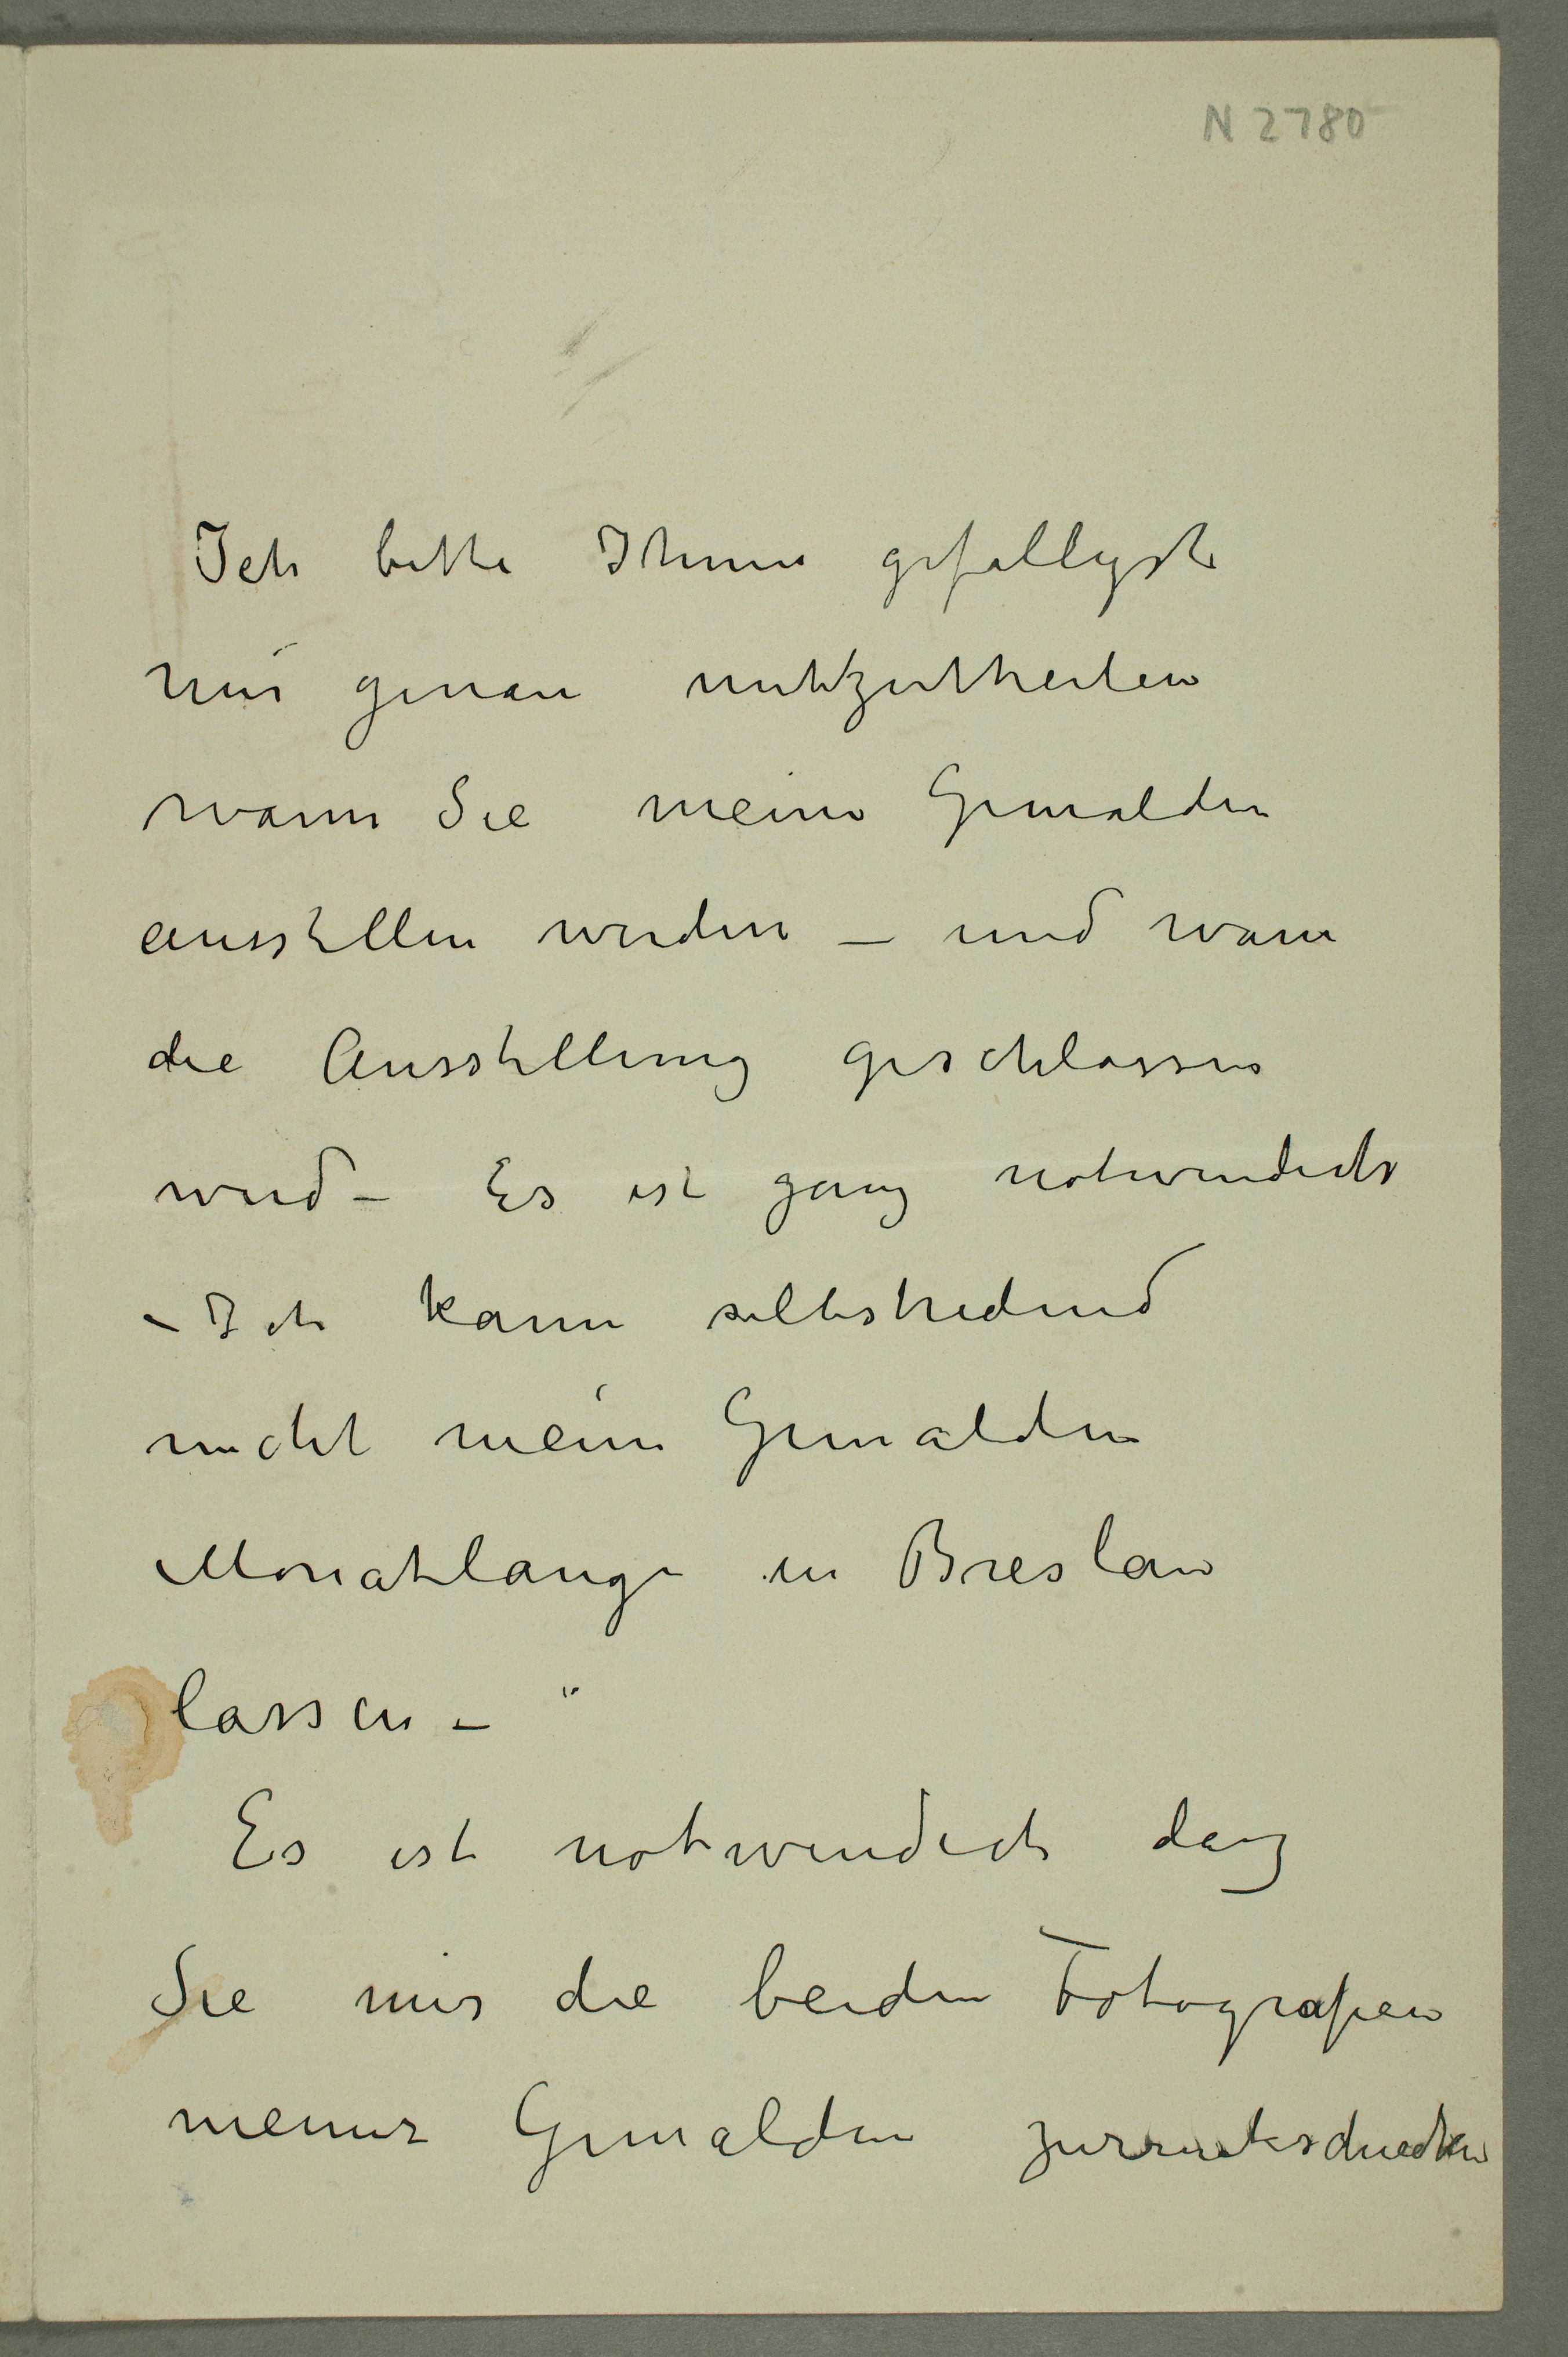 N 2780
Ich bitte Ihnen gefalligst
mir genau mitzutheilen
wann Sie meine Gemalden
ausstellen werden – und wann
die Ausstellung geschlossen
wird – Es ist ganz notwendich
– Ich kann selbstredend
nicht meine Gemalden
Monatlange in Breslau
lassen –
Es ist notwendich daß
Sie mir die beiden Fotografien
meiner Gemalden zurrückschicken